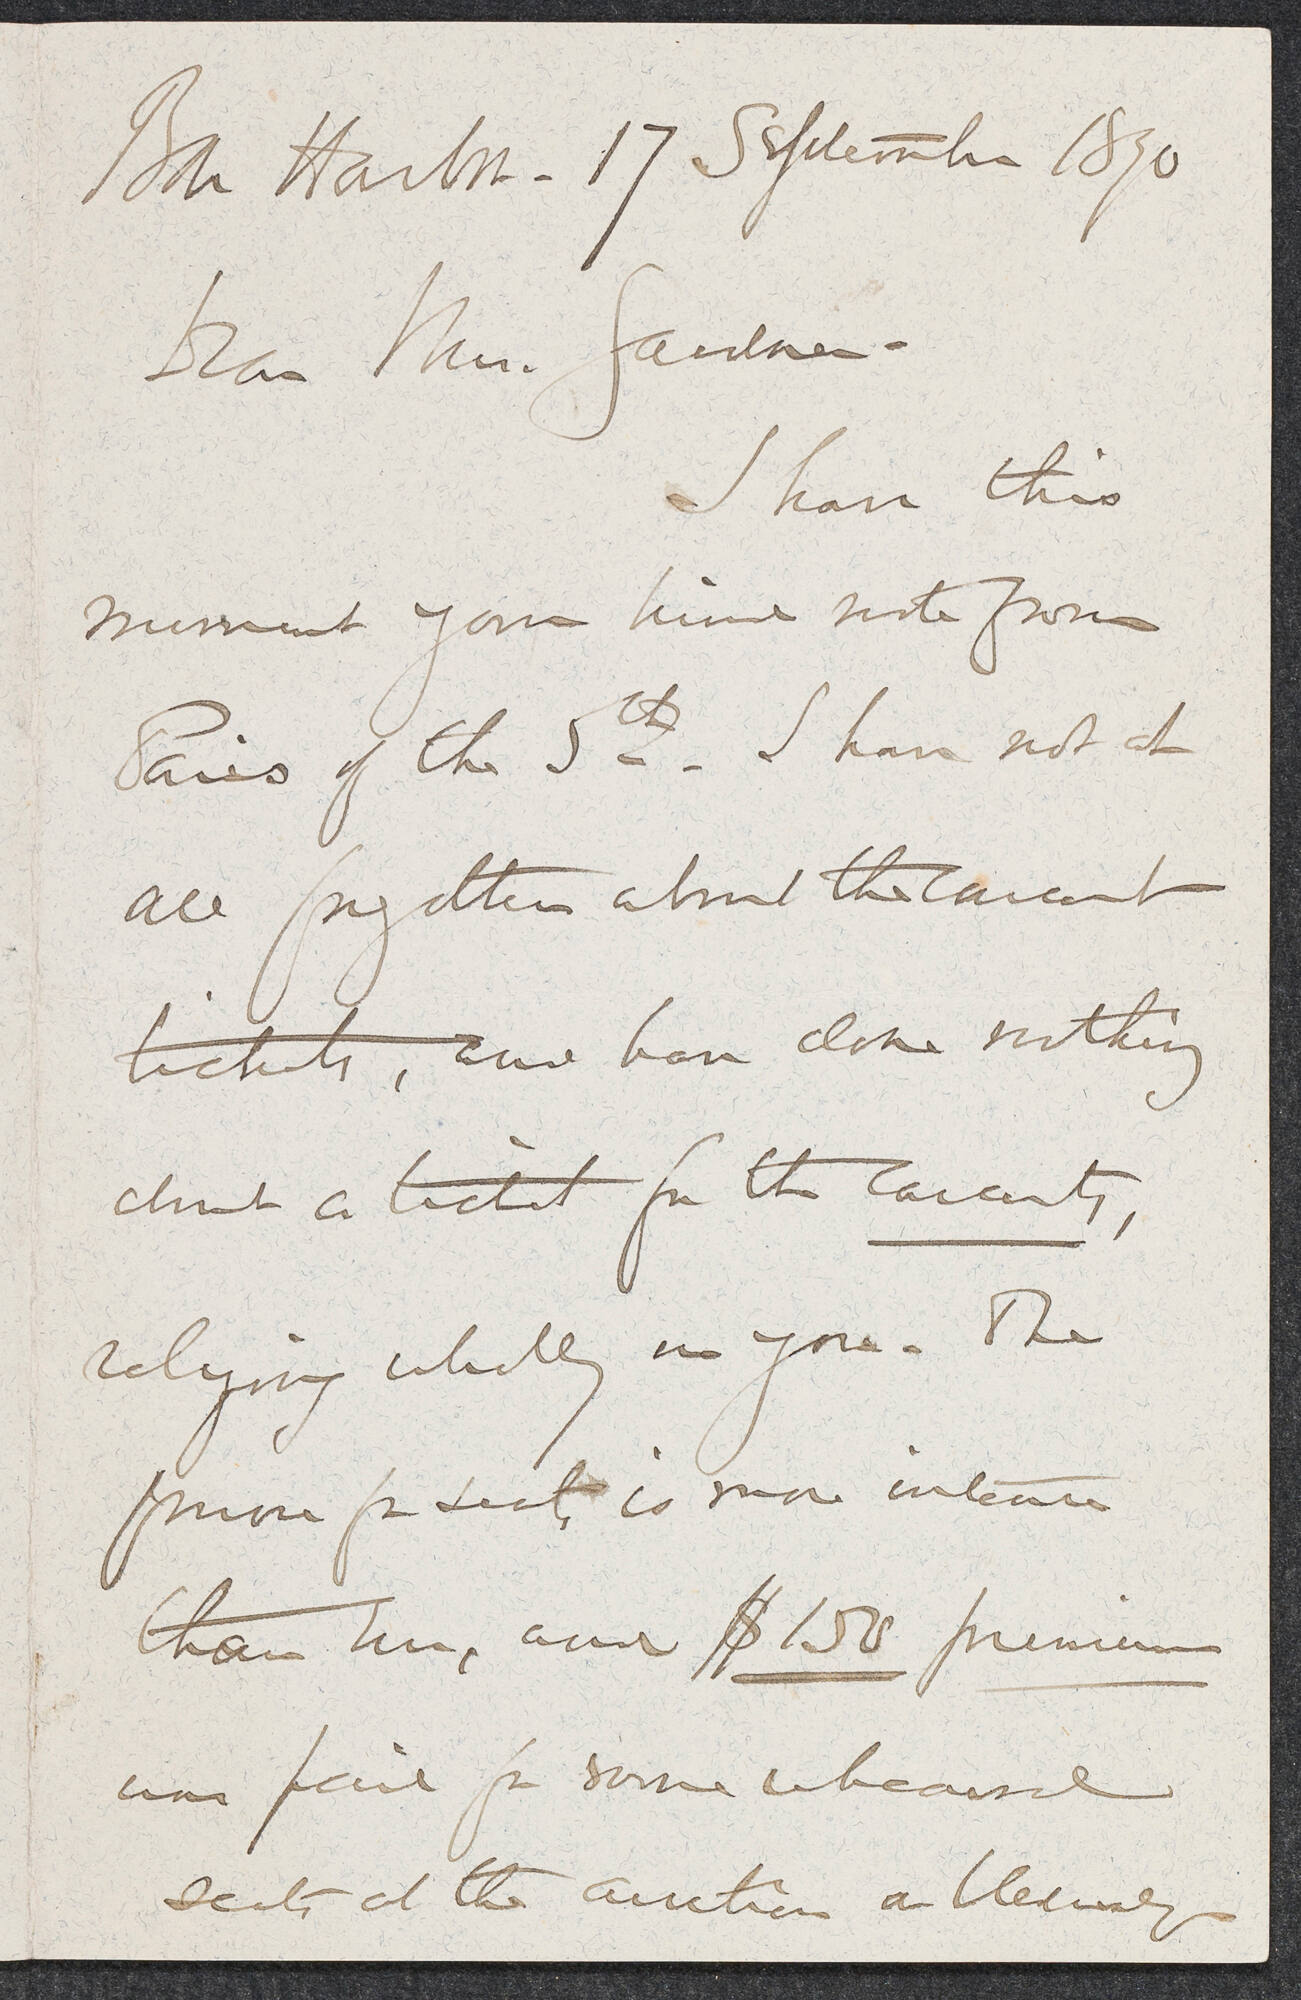 Bar Harbor - 17 September 1890
Dear Mrs. Gardner -
I have this
moment your kind note from
Paris of the 5th. I have not at
all forgotten about the concert
tickets, and have done nothing
about a ticket for the concerts,
relying wholly on you. The
furore for seats is more intense
than ever, and $150 premium
was paid for some rehearsal
seats at the auction on Wednesday